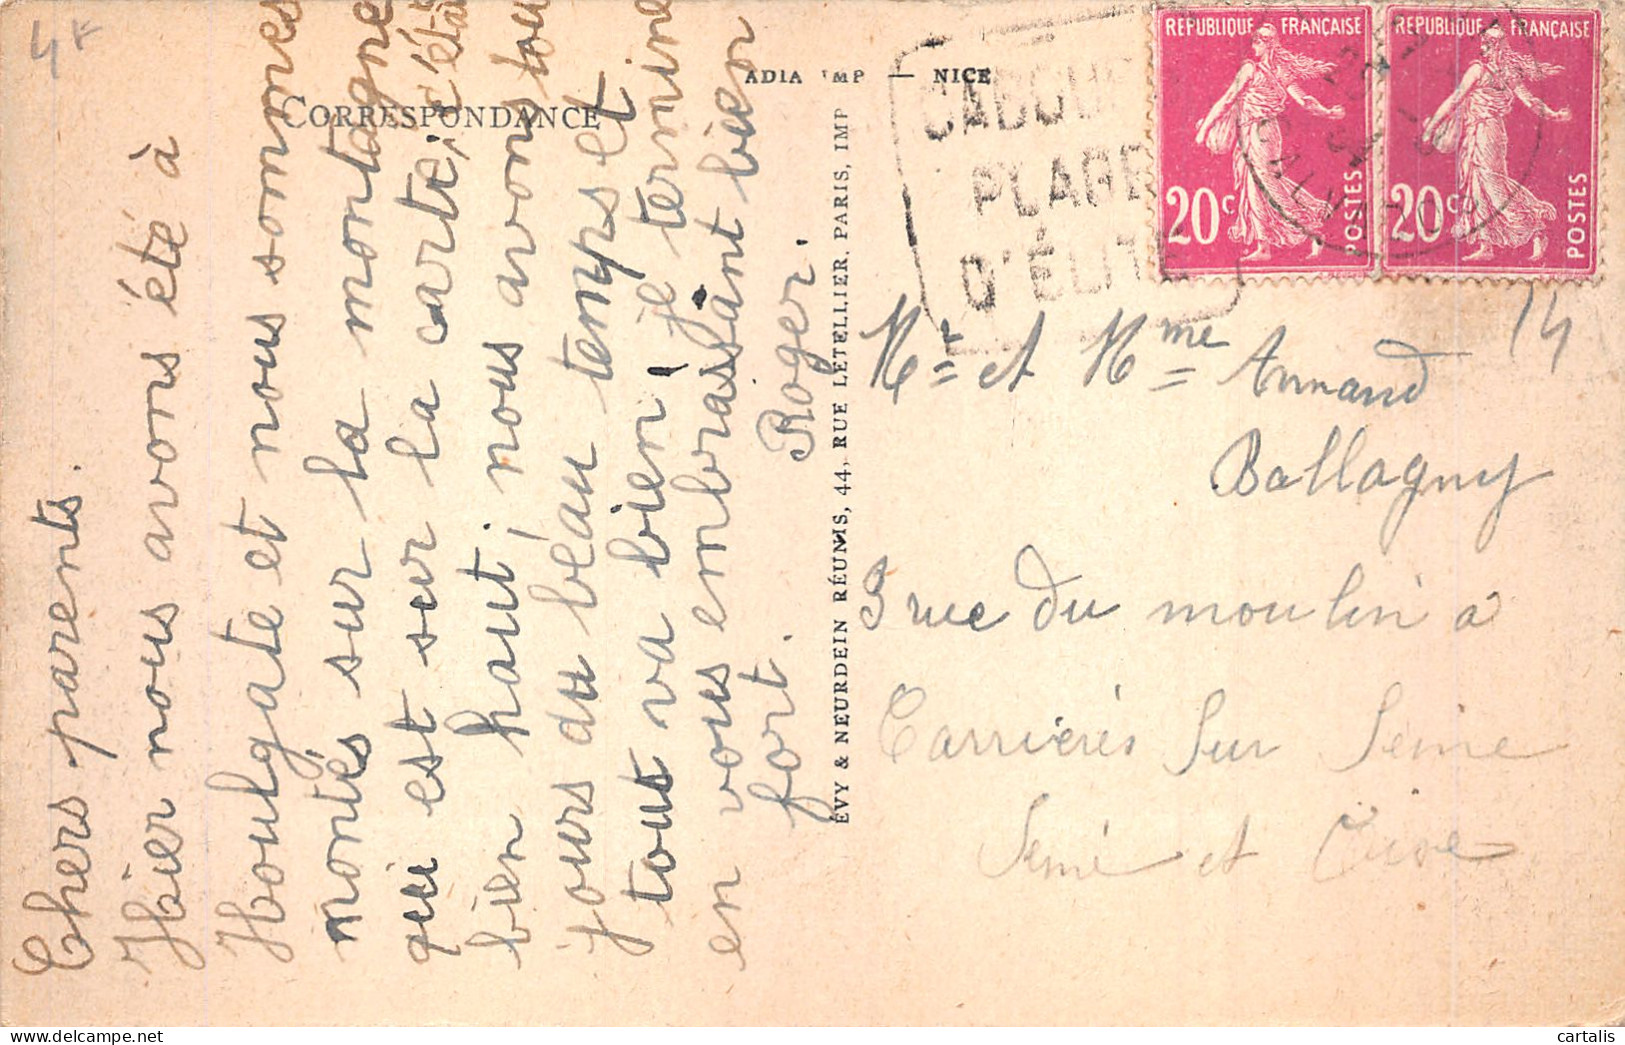 4 F
CORRESPONDANCE
Chers parents.
Hier nous avons été à
Houlgate et nous sommes
montés sur la montagne
qui est sur la carte, c'était
bien haut, nous avons tou
jours du beau temps et
tout va bien, je termine
en vous embrassant bien
fort.
Roger.
ÉVY & NEURDEIN RÉUNIS, 44, RUE LETELLIER, PARIS, IMP
ADIA IMP — NICE
PLAGE
D'ÉLITE
RÉPUBLIQUE FRANÇAISE
20c
POSTES
RÉPUBLIQUE FRANÇAISE
20c
POSTES
CALVADOS
14
Mr et Mme Armand
Ballagny
rue du moulin à
Carrières Sur Seine
Seine et Oise
cartalis